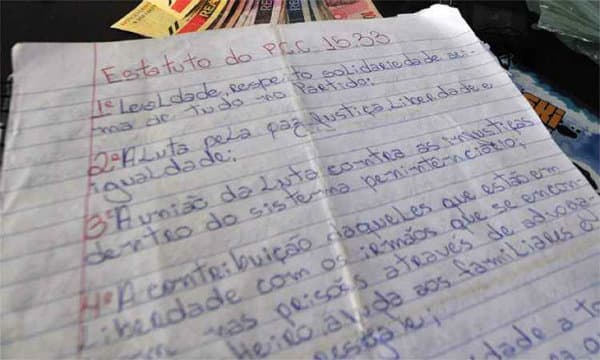 Estatuto do PCC 15.33
1º Lealdade, respeito solidariedade aci-
ma de tudo no Partido;
2º A Luta pela paz, Justiça Liberdade e
igualdade;
3º A união da Luta contra as injustiças
dentro do sistema peninténciário;
4º A contribuição daqueles que estão em
Liberdade com os irmãos que se encon-
nas prisões através de advoga
heiro ajuda aos familiares e
resgate;